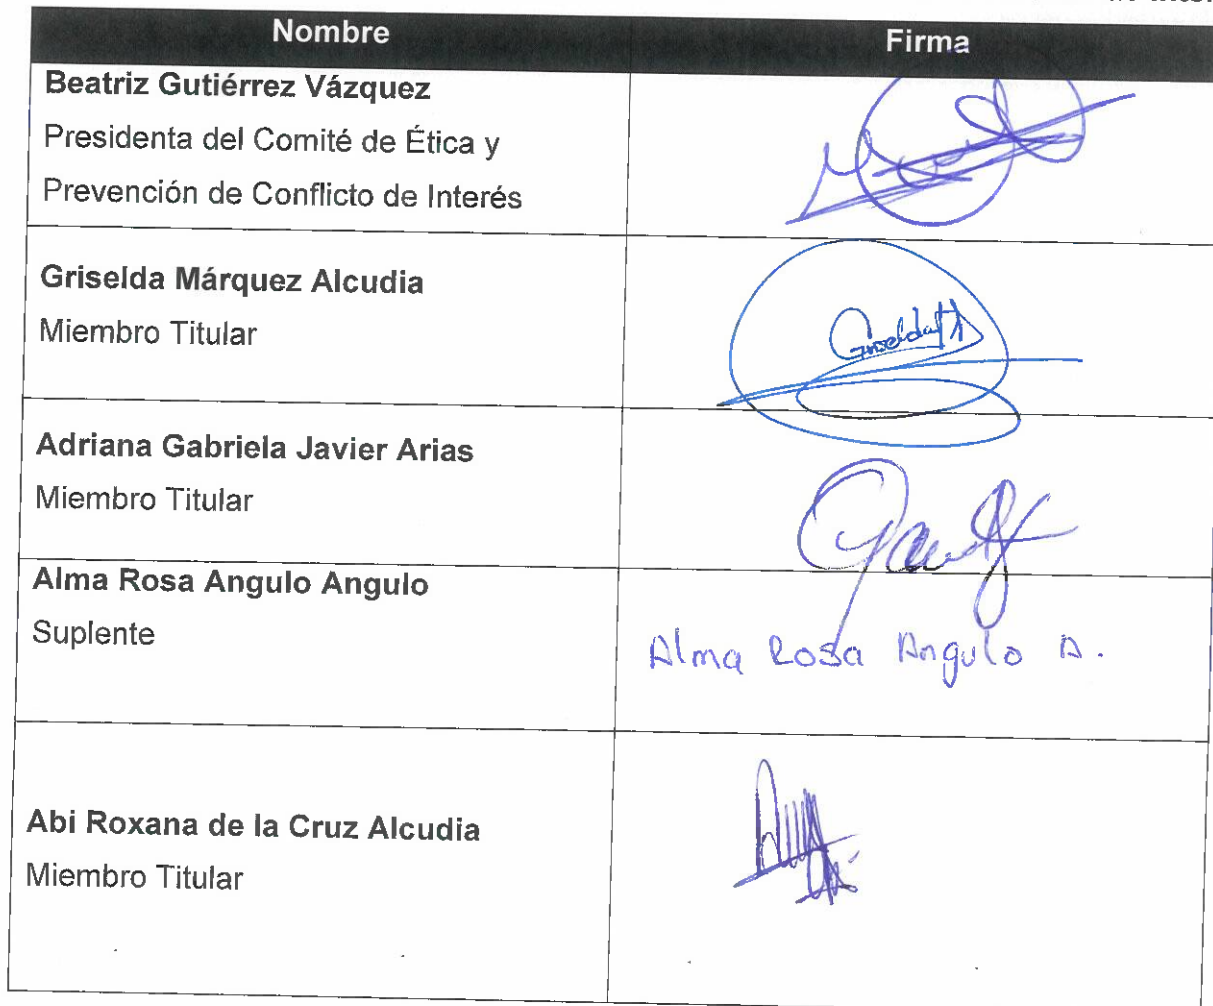 Nombre
Firma
Beatriz Gutiérrez Vázquez
Presidenta del Comité de Ética y
Prevención de Conflicto de Interés
Griselda Márquez Alcudia
Miembro Titular
Griselda
Adriana Gabriela Javier Arias
Miembro Titular
Alma Rosa Angulo Angulo
Suplente
Alma Rosa Angulo A.
Abi Roxana de la Cruz Alcudia
Miembro Titular